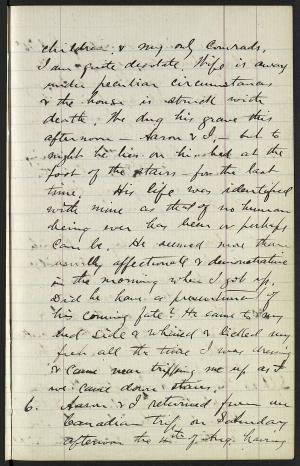 children, & my only comrade.
I am quite desolate. Wife is away
under peculiar circumstances
& the house is struck with
death. We dug his grave this
afternoon – Aaron & I – but to
night he lies on his bed at the
foot of the stairs for the last
time. His life was identified
with mine as that of no human
being ever has been or perhaps
can be. He seemed more than
usually affectionate & demonstrative
in the morning when I got up.
Did he have a presentiment of
his coming fate? He came to my
bed side & whined & licked my
face all the time I was dressing
& came near tripping me up as I
we came down stairs.
6. Aaron & I returned from our
Canadian trip on Saturday
afternoon the of Aug. having